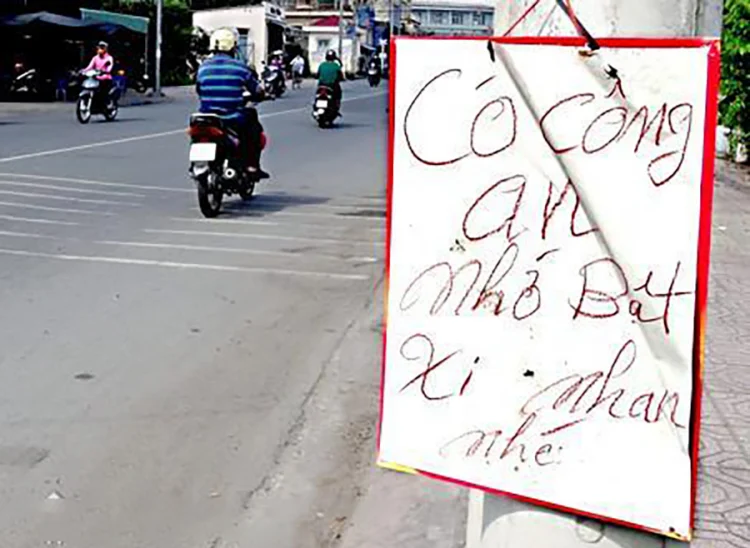 Có Công
an
nhớ Bật
Xi nhan
nhé